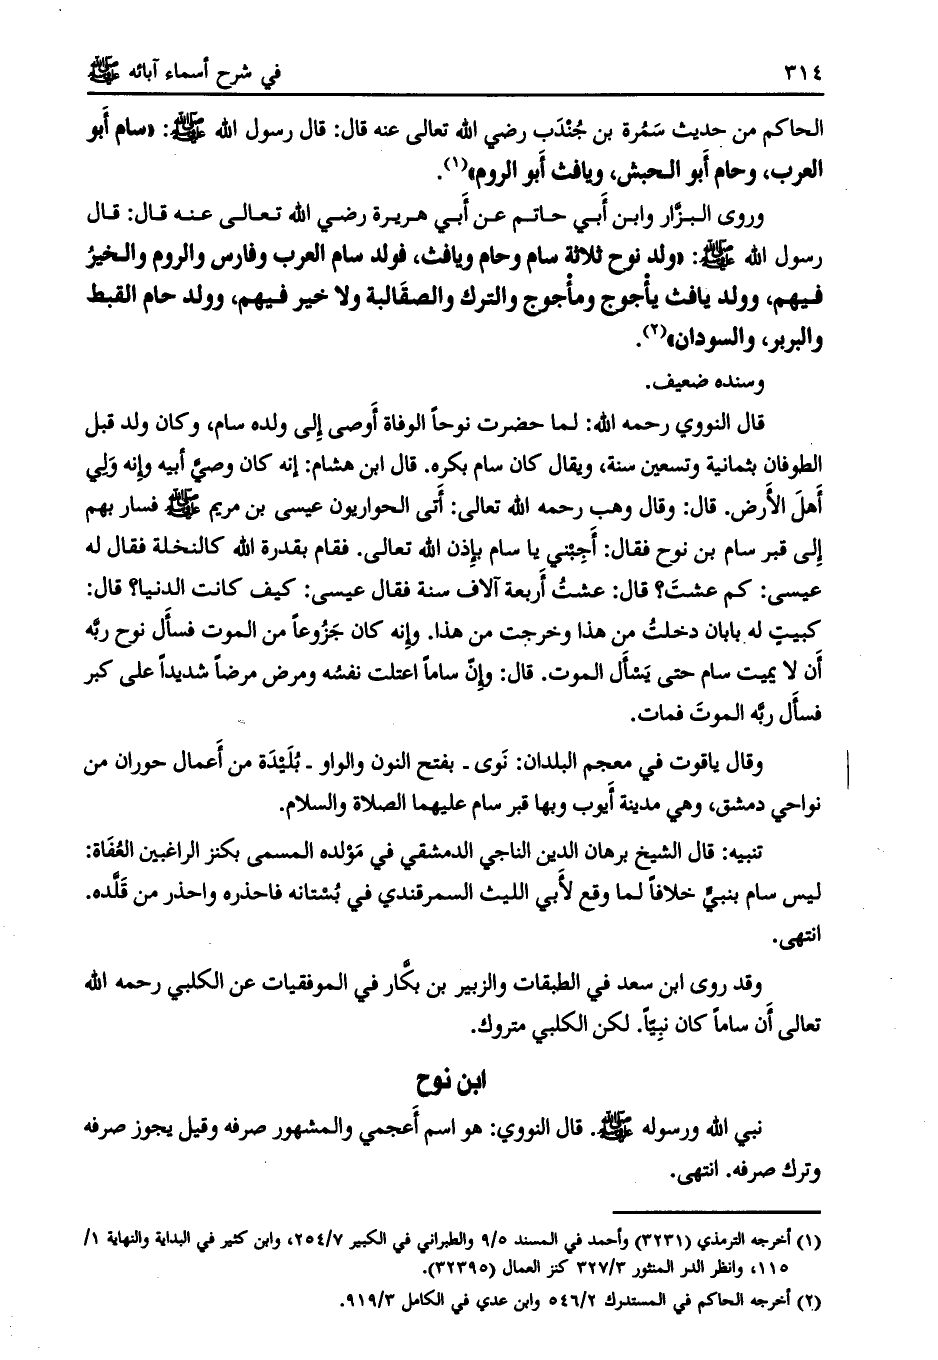 ٣١٤ في شرح أسماء آبائه ﷺ
الحاكم من حديث سَمُرة بن جُنْدَب رضي الله تعالى عنه قال: قال رسول الله ﷺ: «سام أبو
العرب، وحام أبو الحبش، ويافث أبو الروم»(١).
وروى البزَّار وابن أبي حاتم عن أبي هريرة رضي الله تعالى عنه قال: قال
رسول الله ﷺ: «ولد نوح ثلاثة سام وحام ويافث، فولد سام العرب وفارس والروم والخيرُ
فيهم، وولد يافث يأجوج ومأجوج والترك والصقَالبة ولا خير فيهم، وولد حام القبط
والبربر، والسودان»(٢).
وسنده ضعيف.
قال النووي رحمه الله: لما حضرت نوحاً الوفاة أوصى إلى ولده سام، وكان ولد قبل
الطوفان بثمانية وتسعين سنة، ويقال كان سام بكره. قال ابن هشام: إنه كان وصيَّ أبيه وإنه وَلِي
أهلَ الأرض. قال: وقال وهب رحمه الله تعالى: أتى الحواريون عيسى بن مريم ﷺ فسار بهم
إلى قبر سام بن نوح فقال: أجِبْني يا سام بإذن الله تعالى. فقام بقدرة الله كالنخلة فقال له
عيسى: كم عشتَ؟ قال: عشتُ أربعة آلاف سنة فقال عيسى: كيف كانت الدنيا؟ قال:
كبيتٍ له بابان دخلتُ من هذا وخرجت من هذا. وإنه كان جَزُوعاً من الموت فسأل نوح ربَّه
أن لا يميت سام حتى يَسْأل الموت. قال: وإنّ ساماً اعتلت نفسُه ومرض مرضاً شديداً على كبر
فسأل ربَّه الموتَ فمات.
وقال ياقوت في معجم البلدان: نَوى ـ بفتح النون والواو ـ بُلَيْدَة من أعمال حوران من
نواحي دمشق، وهي مدينة أيوب وبها قبر سام عليهما الصلاة والسلام.
تنبيه: قال الشيخ برهان الدين الناجي الدمشقي في مَوْلده المسمى بكنز الراغبين العُفَاة:
ليس سام بنبيٍّ خلافاً لما وقع لأبي الليث السمرقندي في بُسْتانه فاحذره واحذر من قَلَّده.
انتهى.
وقد روى ابن سعد في الطبقات والزبير بن بكَّار في الموفقيات عن الكلبي رحمه الله
تعالى أن ساماً كان نبِيّاً. لكن الكلبي متروك.
ابن نوح
نبي الله ورسوله ﷺ. قال النووي: هو اسم أعجمي والمشهور صرفه وقيل يجوز صرفه
وترك صرفه. انتهى.
(١) أخرجه الترمذي (٣٢٣١) وأحمد في المسند ٩/٥ والطبراني في الكبير ٢٥٤/٧، وابن كثير في البداية والنهاية ١/
١١٥، وانظر الدر المنثور ٣٢٧/٣ كنز العمال (٣٢٣٩٥).
(٢) أخرجه الحاكم في المستدرك ٥٤٦/٢ وابن عدي في الكامل ٩١٩/٣.